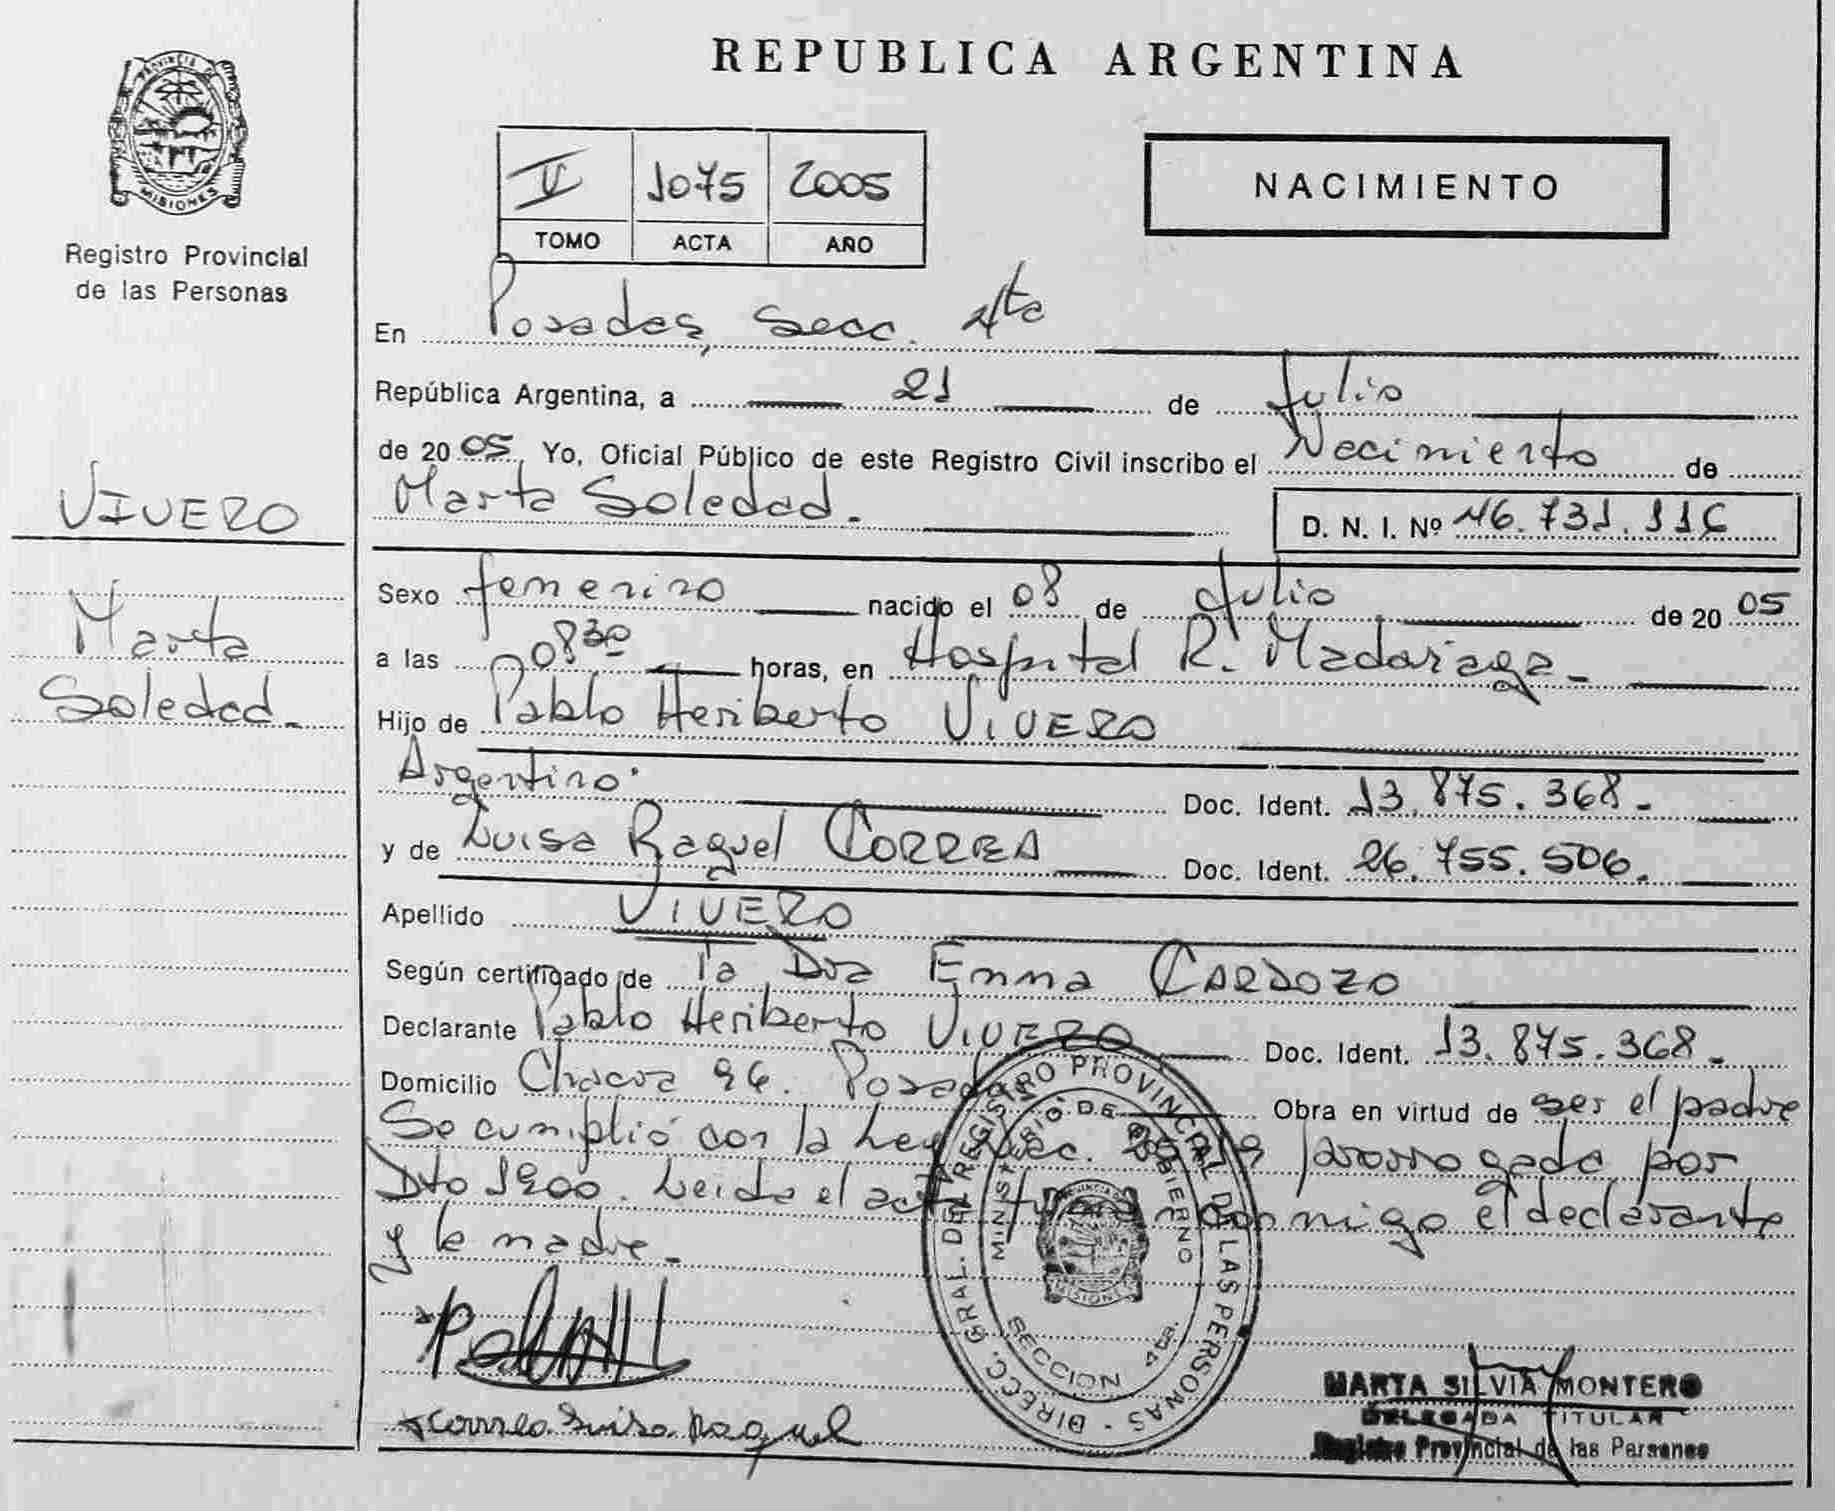 PROVINCIA DE
MISIONES
Registro Provincial
de las Personas
VIVERO
Marta
Soledad.
REPUBLICA ARGENTINA
1075 2005
TOMO ACTA AÑO
NACIMIENTO
En Posadas, Secc. 4ta
República Argentina, a 21 de Julio
de 2005 Yo, Oficial Público de este Registro Civil inscribo el Nacimiento de
Marta Soledad.
D. N. I. Nº 46.731.116
Sexo femenino nacido el 08 de Julio de 2005
a las 08 30 horas, en Hospital R. Madariaga.
Hijo de Pablo Heriberto VIVERO
Argentino. Doc. Ident. 13.875.368.
y de Luisa Raquel CORREA Doc. Ident. 26.755.506.
Apellido VIVERO
Según certificado de la Dra Emma CARDOZO
Declarante Pablo Heriberto VIVERO Doc. Ident. 13.875.368.
Domicilio Chacra 96. Posadas Obra en virtud de ser el padre
Se cumplió con la Ley prorrogada por
Dto 1900. Leida el acta conmigo el declarante
y la madre.
DIRECC. GRAL. DEL REGISTRO PROVINCIAL DE LAS PERSONAS
MINISTERIO DE GOBIERNO
MISIONES
SECCION 4ta.
Correa Luisa Raquel
MARTA SILVIA MONTERO
DELEGADA TITULAR
Registro Provincial de las Personas